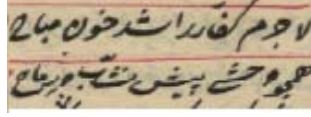 لاجرم کفار را شد خون مباح
همچو وحشی پیش نشاب و رماح